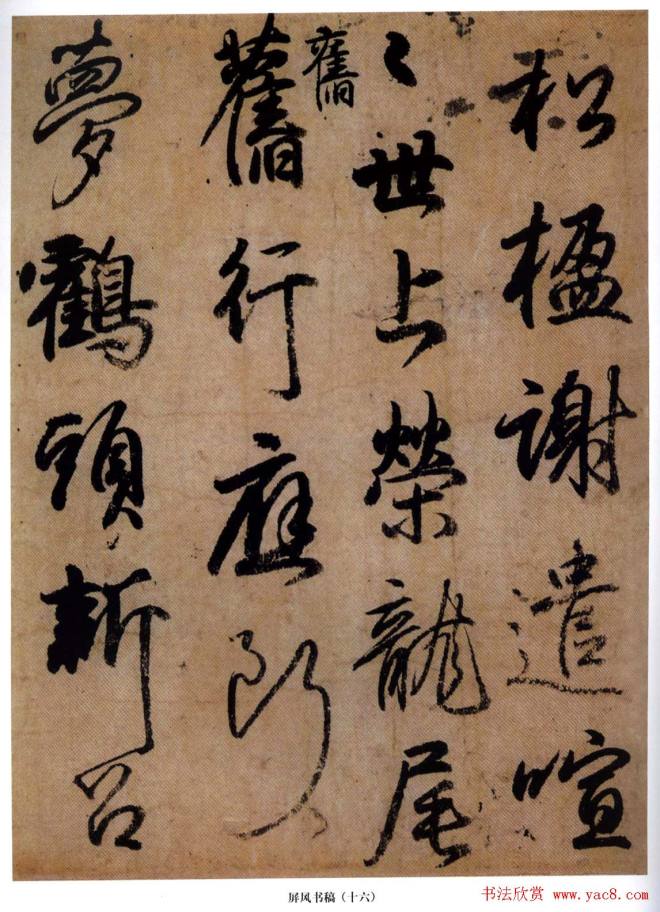 松楹謝遣喧
〻世上榮龍尾
舊
舊行應断
夢鸖頭新召
屏风书稿（十六）
书法欣赏 www.yac8.com